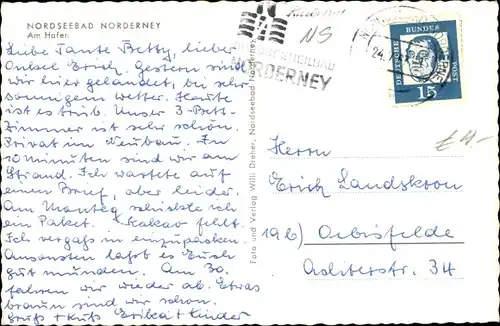 NORDSEEBAD NORDERNEY
Am Hafen
Liebe Tante Betty, lieber
Onkel Erich. Gestern sind
wir hier gelandet, bei sehr
sonnigem Wetter. Heute
ist es trüb. Unser 3-Bett-
Zimmer ist sehr schön.
Privat im Neubau. In
10 Minuten sind wir am
Strand. Ich wartete auf
einen Brief, aber leider.
Am Montag schickte ich
ein Paket. Kakao fehlt.
Ich vergaß ihn einzupacken.
Ansonsten laßt es Euch
gut munden. Am 30.
fahren wir wieder ab. Etwas
braun sind wir schon.
Gruß + Kuß Erika + Kinder
Foto und Verlag Willi Dreher, Nordseebad Norderney
NS
NORDERNEY
DEUTSCHE BUNDESPOST
15
24.7.
Herrn
Erich Landskron
19b) Oebisfelde
Achterstr. 34